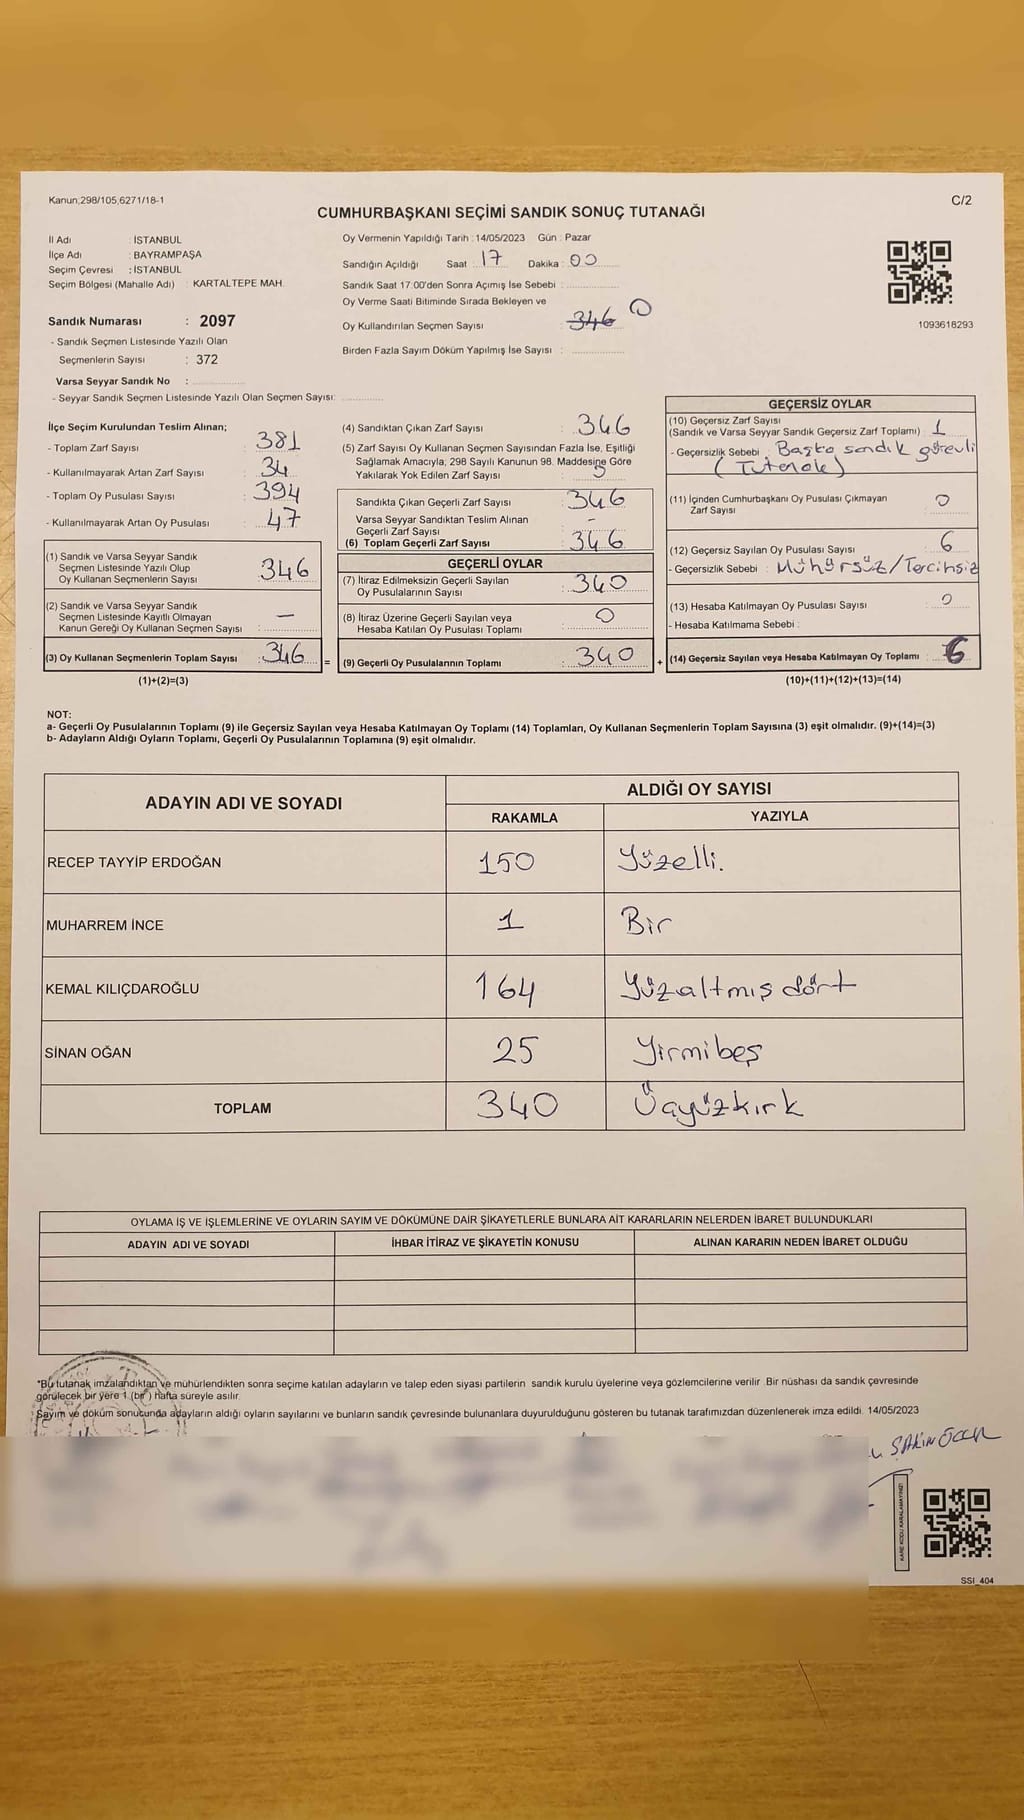 Kanun,298/105,6271/18-1
C/2
CUMHURBAŞKANI SEÇİMİ SANDIK SONUÇ TUTANAĞI
İl Adı : İSTANBUL
İlçe Adı : BAYRAMPAŞA
Seçim Çevresi : İSTANBUL
Seçim Bölgesi (Mahalle Adı) : KARTALTEPE MAH.
Sandık Numarası : 2097
- Sandık Seçmen Listesinde Yazılı Olan
Seçmenlerin Sayısı : 372
Varsa Seyyar Sandık No :
- Seyyar Sandık Seçmen Listesinde Yazılı Olan Seçmen Sayısı:
Oy Vermenin Yapıldığı Tarih : 14/05/2023 Gün : Pazar
Sandığın Açıldığı Saat : 17 Dakika : 00
Sandık Saat 17:00'den Sonra Açımış İse Sebebi :
Oy Verme Saati Bitiminde Sırada Bekleyen ve
Oy Kullandırılan Seçmen Sayısı : 346 0
Birden Fazla Sayım Döküm Yapılmış İse Sayısı :
1093618293
İlçe Seçim Kurulundan Teslim Alınan;
- Toplam Zarf Sayısı : 381
- Kullanılmayarak Artan Zarf Sayısı : 34
- Toplam Oy Pusulası Sayısı : 394
- Kullanılmayarak Artan Oy Pusulası : 47
(1) Sandık ve Varsa Seyyar Sandık
Seçmen Listesinde Yazılı Olup
Oy Kullanan Seçmenlerin Sayısı : 346
(2) Sandık ve Varsa Seyyar Sandık
Seçmen Listesinde Kayıtlı Olmayan
Kanun Gereği Oy Kullanan Seçmen Sayısı : —
(3) Oy Kullanan Seçmenlerin Toplam Sayısı : 346
(1)+(2)=(3)
(4) Sandıktan Çıkan Zarf Sayısı : 346
(5) Zarf Sayısı Oy Kullanan Seçmen Sayısından Fazla İse, Eşitliği
Sağlamak Amacıyla; 298 Sayılı Kanunun 98. Maddesine Göre
Yakılarak Yok Edilen Zarf Sayısı :
Sandıkta Çıkan Geçerli Zarf Sayısı : 346
Varsa Seyyar Sandıktan Teslim Alınan
Geçerli Zarf Sayısı : -
(6) Toplam Geçerli Zarf Sayısı : 346
GEÇERLİ OYLAR
(7) İtiraz Edilmeksizin Geçerli Sayılan
Oy Pusulalarının Sayısı : 340
(8) İtiraz Üzerine Geçerli Sayılan veya
Hesaba Katılan Oy Pusulası Toplamı : 0
= (9) Geçerli Oy Pusulalarının Toplamı : 340
GEÇERSİZ OYLAR
(10) Geçersiz Zarf Sayısı
(Sandık ve Varsa Seyyar Sandık Geçersiz Zarf Toplamı) : 1
- Geçersizlik Sebebi : Başka sandık görevli
(Tutanak)
(11) İçinden Cumhurbaşkanı Oy Pusulası Çıkmayan
Zarf Sayısı : 0
(12) Geçersiz Sayılan Oy Pusulası Sayısı : 6
- Geçersizlik Sebebi : Mühürsüz/Tercihsiz
(13) Hesaba Katılmayan Oy Pusulası Sayısı : 0
- Hesaba Katılmama Sebebi :
+ (14) Geçersiz Sayılan veya Hesaba Katılmayan Oy Toplamı : 6
(10)+(11)+(12)+(13)=(14)
NOT:
a- Geçerli Oy Pusulalarının Toplamı (9) ile Geçersiz Sayılan veya Hesaba Katılmayan Oy Toplamı (14) Toplamları, Oy Kullanan Seçmenlerin Toplam Sayısına (3) eşit olmalıdır. (9)+(14)=(3)
b- Adayların Aldığı Oyların Toplamı, Geçerli Oy Pusulalarının Toplamına (9) eşit olmalıdır.
ADAYIN ADI VE SOYADI ALDIĞI OY SAYISI
RAKAMLA YAZIYLA
RECEP TAYYİP ERDOĞAN 150 Yüzelli.
MUHARREM İNCE 1 Bir
KEMAL KILIÇDAROĞLU 164 Yüzaltmış dört
SİNAN OĞAN 25 Yirmibeş
TOPLAM 340 Üçyüzkırk
OYLAMA İŞ VE İŞLEMLERİNE VE OYLARIN SAYIM VE DÖKÜMÜNE DAİR ŞİKAYETLERLE BUNLARA AİT KARARLARIN NELERDEN İBARET BULUNDUKLARI
ADAYIN ADI VE SOYADI İHBAR İTİRAZ VE ŞİKAYETİN KONUSU ALINAN KARARIN NEDEN İBARET OLDUĞU
*Bu tutanak imzalandıktan ve mühürlendikten sonra seçime katılan adayların ve talep eden siyasi partilerin sandık kurulu üyelerine veya gözlemcilerine verilir. Bir nüshası da sandık çevresinde
görülecek bir yere 1 (bir) hafta süreyle asılır.
Sayım ve döküm sonucunda adayların aldığı oyların sayılarını ve bunların sandık çevresinde bulunanlara duyurulduğunu gösteren bu tutanak tarafımızdan düzenlenerek imza edildi. 14/05/2023
KARE KODU KARALAMAYINIZ!
SSI_404